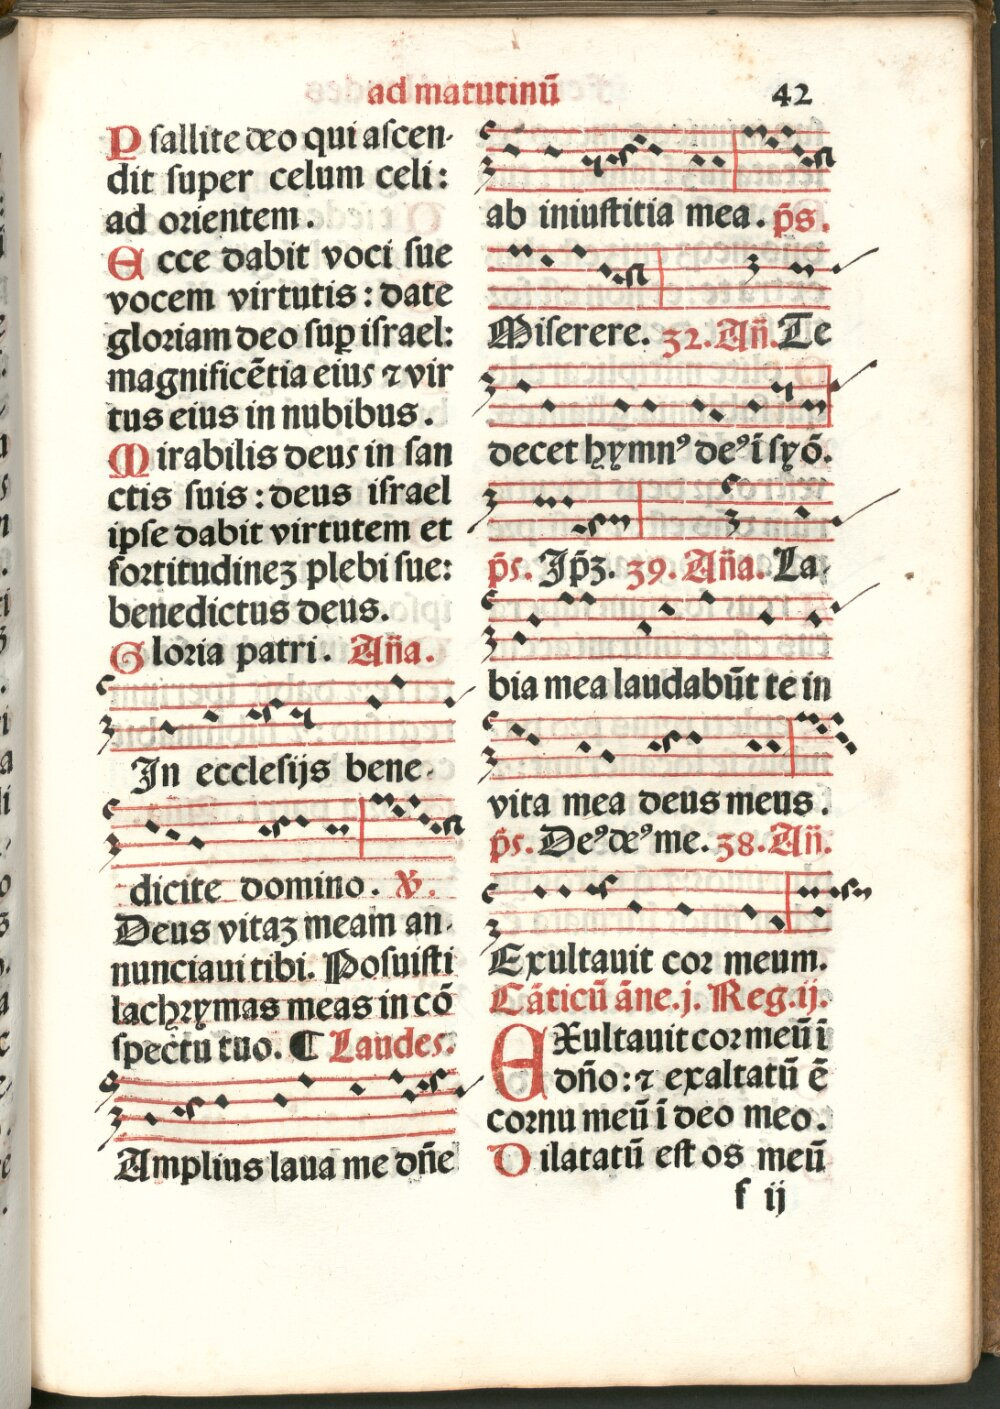 ad matutinū
42
Psallite deo qui ascen-
dit super celum celi:
ad orientem.
Ecce dabit voci sue
vocem virtutis: date
gloriam deo suꝑ israel:
magnificētia eius ⁊ vir
tus eius in nubibus.
Mirabilis deus in san
ctis suis: deus israel
ipse dabit virtutem et
fortitudineꝫ plebi sue:
benedictus deus.
Gloria patri. Aña.
In ecclesijs bene-
dicite domino. ℣.
Deus vitaꝫ meam an-
nunciaui tibi. Posuisti
lachrymas meas in cō
spectu tuo. ¶ Laudes.
Amplius laua me dñe
ab iniustitia mea. p̄s.
Miserere. 32. Añ. Te
decet hymnꝰ deꝰ ī syō.
p̄s. Ip̄ꝫ. 39. Añа. La-
bia mea laudabūt te in
vita mea deus meus.
p̄s. Deꝰ deꝰ me. 38. Añ.
Exultauit cor meum.
Cāticū āne. j. Reg. ij.
EXultauit cor meū ī
dño: ⁊ exaltatū ē
cornu meū ī deo meo.
Dilatatū est os meū
f ij